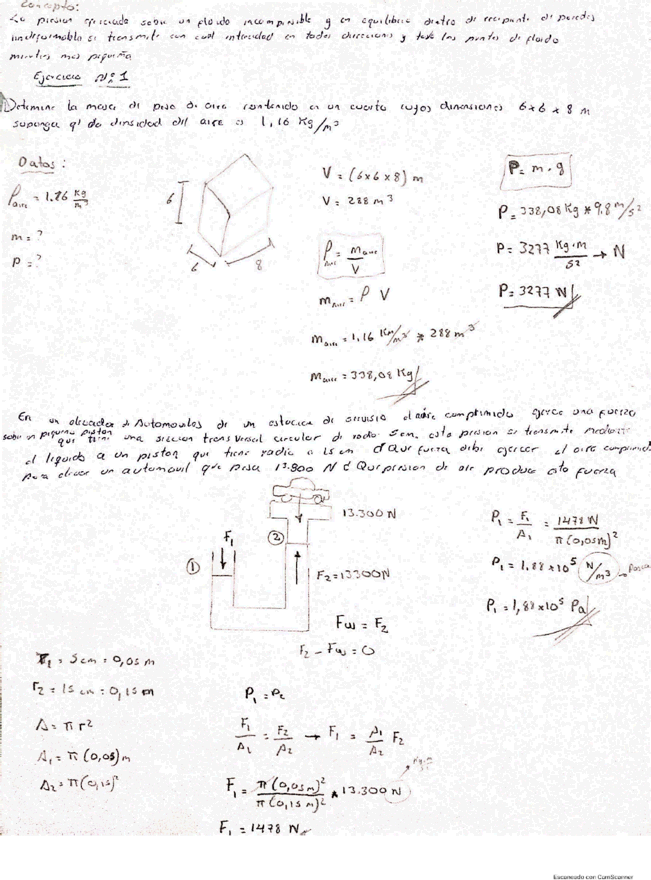 Concepto:
La presion ejercida sobre un fluido incompresible y en equilibrio dentro de recipiente de paredes
indeformables se transmite con igual intensidad en todas direcciones y todos los puntos de fluido
Ejercicio Nº 1
Determine la masa del peso de aire contenido en un cuarto cuyas dimensiones 6 x 6 x 8 m
suponga q' da densidad del aire es 1,16 Kg/m³
Datos:
ρaire = 1.16 Kg/m³
m = ?
P = ?
6
6
8
V = (6x6x8) m
V = 288 m³
ρaire = maire / V
maire = ρ V
maire = 1,16 Km/m³ * 288 m³
maire = 338,08 Kg
P = m . g
P = 338,08 Kg * 9.8 m/s²
P = 3277 Kg.m/s² → N
P = 3277 N
En un elevador de Automoviles de un estacion de servicio el aire comprimido ejerce una fuerza
sobre un pequeño piston
que tiene una seccion transversal circular de radio 5cm, esta presion se transmite mediante
el liquido a un piston que tiene radio a 15 cm ¿ Que fuerza debe ejercer el aire comprimido
para elevar un automovil que pesa 13.300 N ¿ Que presion de aire produce esta fuerza
13.300 N
F1
①
②
F2=13300N
Fw = F2
F2 - Fw = 0
P1 = F1/A1 = 1478 N / π(0,05m)²
P1 = 1.88 x 10⁵ N/m³ → Pascal
P1 = 1,88 x 10⁵ Pa
r1 = 5 cm = 0,05 m
r2 = 15 cm = 0,15 m
A = π r²
A1 = π (0,05) m
A2 = π (0,15)²
P1 = P2
F1/A1 = F2/A2 → F1 = A1/A2 F2
F1 = π(0,05m)² / π(0,15m)² * 13.300 N
F1 = 1478 N
Escaneado con CamScanner